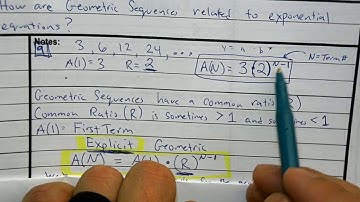 How are Geometric Sequences related to exponential
equations?
Notes:
9) 3, 6, 12, 24, ... y = a · b
A(1) = 3 R = 2 A(N) = 3(2)^N-1 N = Term #
Geometric Sequences have a common ratio (R)
Common Ratio (R) is sometimes > 1 and sometimes < 1
A(1) = First Term
Explicit Geometric
A(N) = A(1) · (R)^N-1